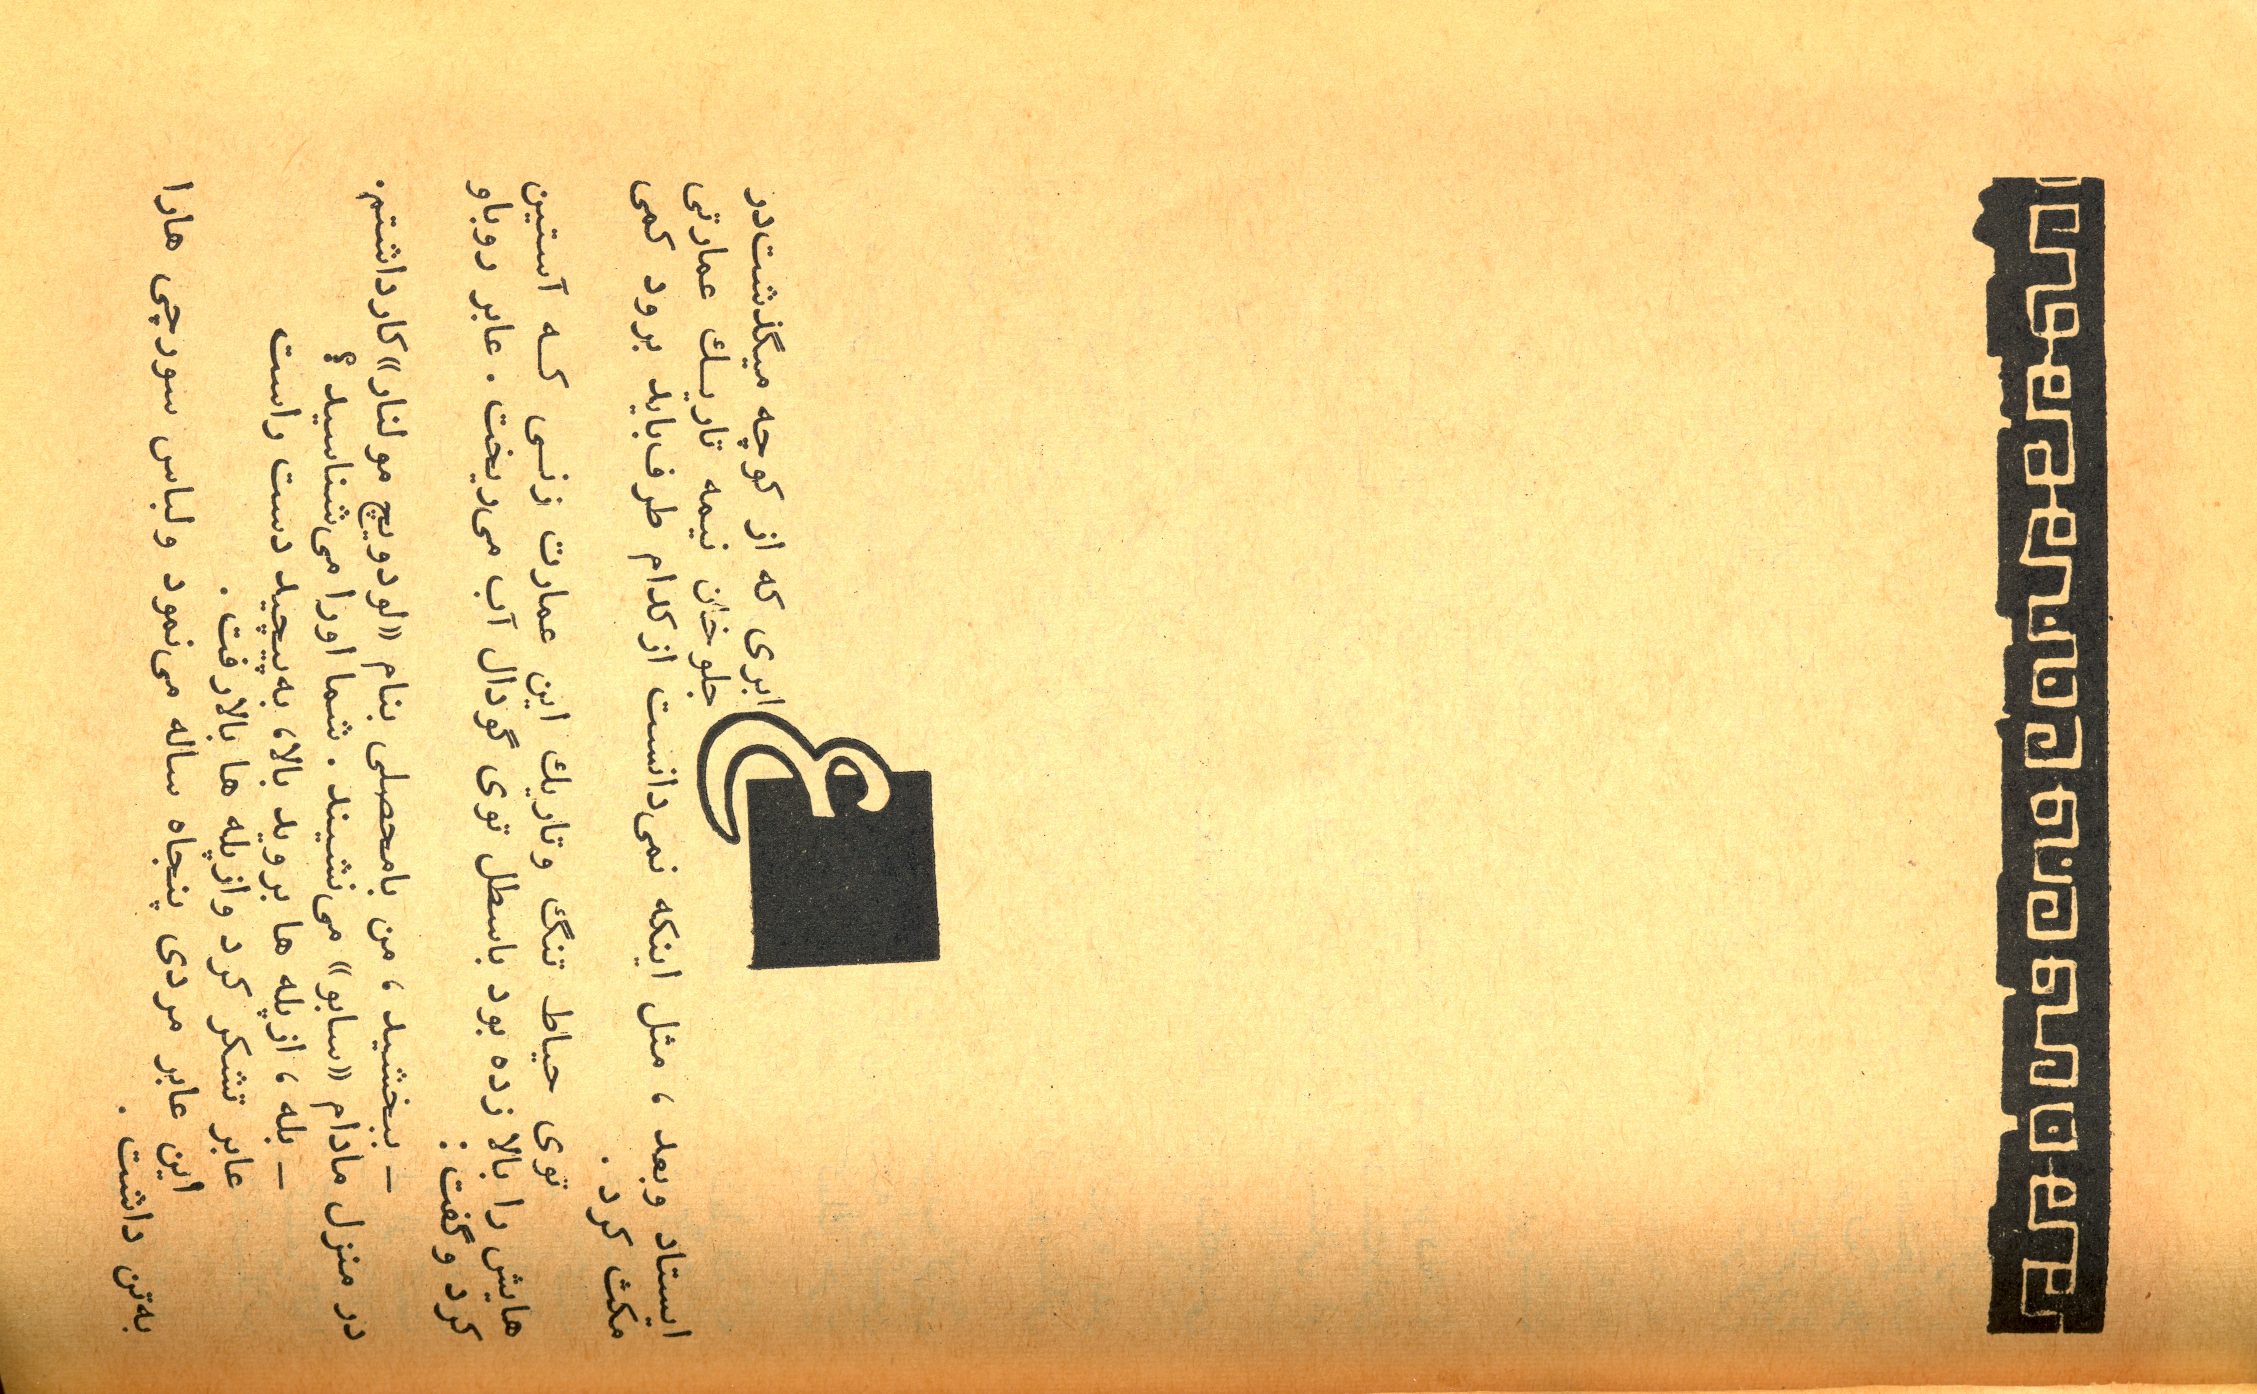 عابری که از کوچه میگذشت‌در
جلوخان نیمه تاریك عمارتی
ایستاد وبعد ، مثل اینکه نمی‌دانست ازکدام طرف‌باید برود کمی
مکث کرد .
توی حیاط تنگ وتاریك این عمارت زنی که آستین
هایش را بالا زده بود باسطل توی گودال آب می‌ریخت . عابر روباو
کرد وگفت :
ـ ببخشید ، من بامحصلی بنام «لودویچ مولنار» کارداشتم.
در منزل مادام «سابو» می‌نشیند . شما اورا می‌شناسید ؟
ـ بله ، ازپله ها بروید بالا، به‌پیچید دست راست
عابر تشکر کرد وازپله ها بالارفت .
این عابر مردی پنجاه ساله می‌نمود ولباس سورچی هارا
به‌تن داشت .